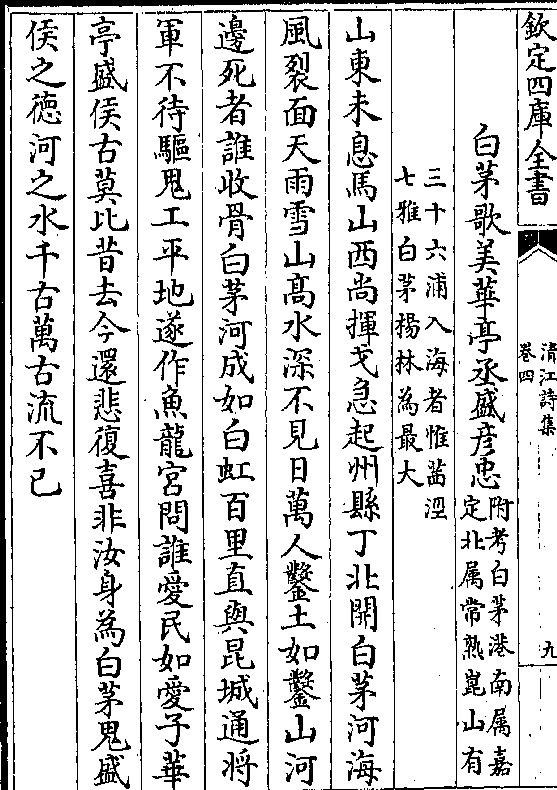 欽定四庫全書
清江詩集
卷四
九
白茅歌美華亭丞盛彦忠
附考白茅港南属嘉
定北属常熟崑山有
三十六浦入海者惟茜涇
七雅白茅楊林為最大
山東未息馬山西尚揮戈急起州縣丁北開白茅河海
風裂面天雨雪山髙水深不見日萬人鑿土如鑿山河
邊死者誰收骨白茅河成如白虹百里直與昆城通将
軍不待驅鬼工平地遂作魚龍宮問誰愛民如愛子華
亭盛侯古莫比昔去今還悲復喜非汝身為白茅鬼盛
侯之德河之水千古萬古流不已